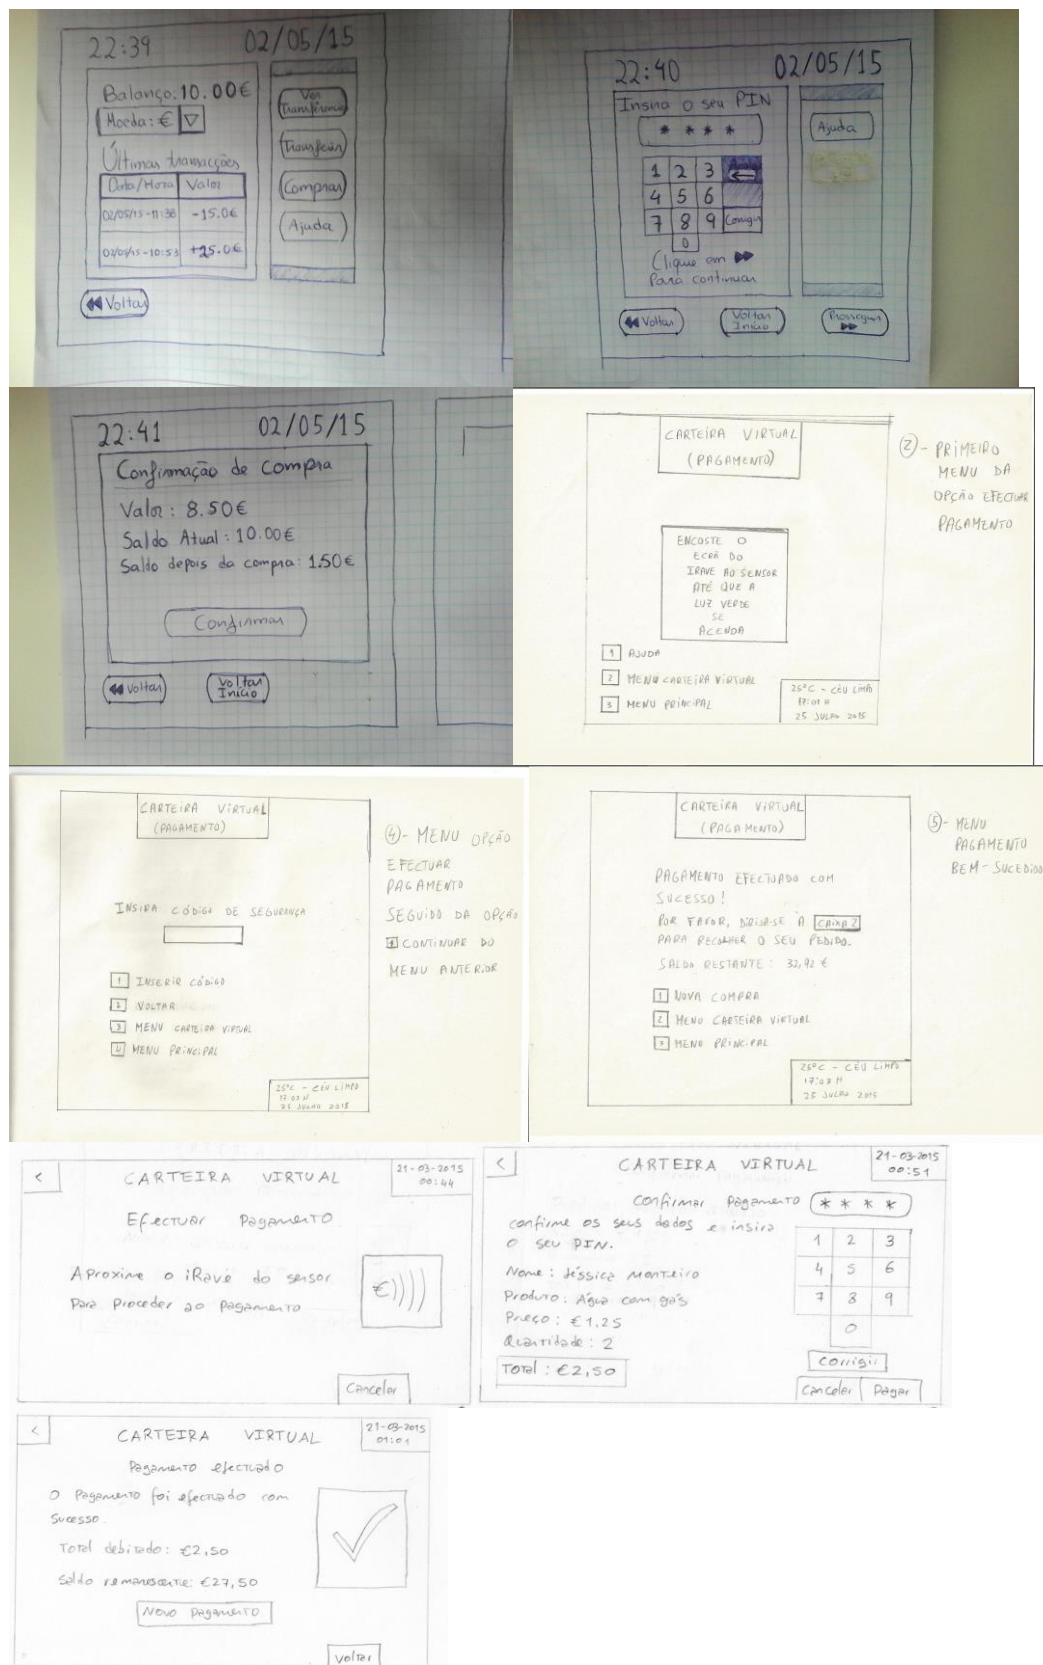 22:39 02/05/15
Balanço: 10.00€
Moeda: €
Últimas transacções
Data/Hora Valor
02/05/15-11:38 -15.0€
02/05/15-10:53 +25.0€
Ver Transferência
Transferir
Comprar
Ajuda
Voltar
22:40 02/05/15
Insira o seu PIN
* * * *
1 2 3
4 5 6
7 8 9 Corrigir
0
Clique em
Para continuar
Ajuda
Voltar
Voltar
Início
Prosseguir
22:41 02/05/15
Confirmação de Compra
Valor: 8.50€
Saldo Atual: 10.00€
Saldo depois da compra: 1.50€
Confirmar
Voltar
Voltar
Início
CARTEIRA VIRTUAL
(PAGAMENTO)
ENCOSTE O
ECRÃ DO
IRAVE AO SENSOR
ATÉ QUE A
LUZ VERDE
SE
ACENDA
1 AJUDA
2 MENU CARTEIRA VIRTUAL
3 MENU PRINCIPAL
25°C - CÉU LIMPO
17:01 H
25 JULHO 2015
2 - PRIMEIRO
MENU DA
OPÇÃO EFECTUAR
PAGAMENTO
CARTEIRA VIRTUAL
(PAGAMENTO)
INSIRA CÓDIGO DE SEGURANÇA
1 INSERIR CÓDIGO
2 VOLTAR
3 MENU CARTEIRA VIRTUAL
4 MENU PRINCIPAL
25°C - CÉU LIMPO
17:03 H
25 JULHO 2015
4 - MENU OPÇÃO
EFECTUAR
PAGAMENTO
SEGUIDO DA OPÇÃO
1 CONTINUAR DO
MENU ANTERIOR
CARTEIRA VIRTUAL
(PAGAMENTO)
PAGAMENTO EFECTUADO COM
SUCESSO!
POR FAVOR, DIRIJA-SE À CAIXA 2
PARA RECOLHER O SEU PEDIDO.
SALDO RESTANTE: 32,92 €
1 NOVA COMPRA
2 MENU CARTEIRA VIRTUAL
3 MENU PRINCIPAL
25°C - CÉU LIMPO
17:03 H
25 JULHO 2015
5 - MENU
PAGAMENTO
BEM-SUCEDIDO
< CARTEIRA VIRTUAL 21-03-2015
00:44
Efectuar Pagamento
Aproxime o iRave do sensor
Para Proceder ao Pagamento
€))))
Cancelar
< CARTEIRA VIRTUAL 21-03-2015
00:51
Confirmar Pagamento * * * *
confirme os seus dados e insira
o seu PIN.
Nome: Jéssica Monteiro
Produto: Água com gás
Preço: €1,25
Quantidade: 2
Total: €2,50
1 2 3
4 5 6
7 8 9
0
Corrigir
Cancelar Pagar
< CARTEIRA VIRTUAL 21-03-2015
01:01
Pagamento efectuado
O Pagamento foi efectuado com
Sucesso.
Total debitado: €2,50
Saldo remanescente: €27,50
Novo Pagamento
Voltar